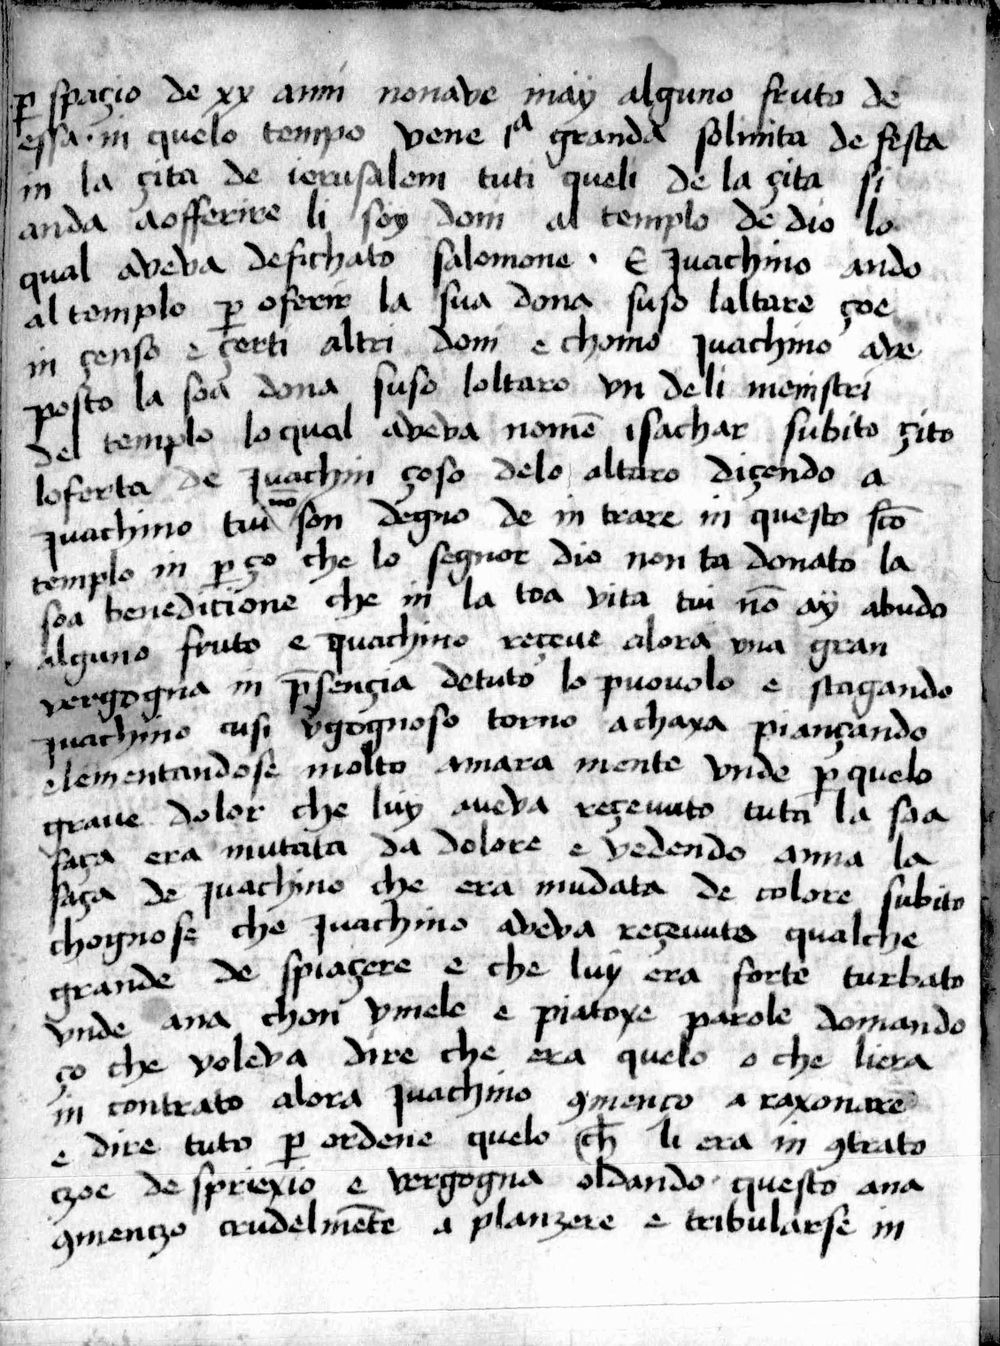 p̱ spaçio de xx anni nonave may alguno fruto de
essa · in quelo tempo vene 1ª granda solinita de festa
in la çita de ierusalem tuti queli de la çita si
anda aofferire li soy doni al templo de dio lo
qual aveva defichato salomone · E Juachino ando
al templo p̱ oferir la sua dona suso laltare çoe
in çenso e çerti altri doni e chomo Juachino ave
posto la soa dona suso loltaro vn deli menistri
del templo loqual aveva nomē isachar subito çito
loferta de Juachin çoso delo altaro diçendo a
Juachino tui nō son degno de in trare in questo sc̄o
templo in p̱ ço che lo segnor dio non ta donato la
soa beneditione che in la toa vita tui nō ay abudo
alguno fruto e Juachino reçeue alora vna gran
vergogna in p̄sençia detuto lo puovolo e stagando
Juachino cusi v̄gognoso torno achaxa piançando
elementandose molto amara mente vnde p̱ quelo
graue dolor che luy aueva reçeuuto tuta la soa
faça era mutata da dolore e vedendo anna la
faça de Juachino che era mudata de colore subito
chognose che Juachino aveva reçeuuto qualche
grande de spiaçere e che luy era forte turbato
vnde ana chon vmele e piatoxe parole domando
ço che voleva dire che era quelo o che liera
in contrato alora Juachino ꝯmenço a raxonare
e dire tuto p̱ ordene quelo ch̄ li era in ꝯtrato
czoe de spriexio e vergogna oldando · questo ana
ꝯmenczo crudelmēte a planzere e tribularse in